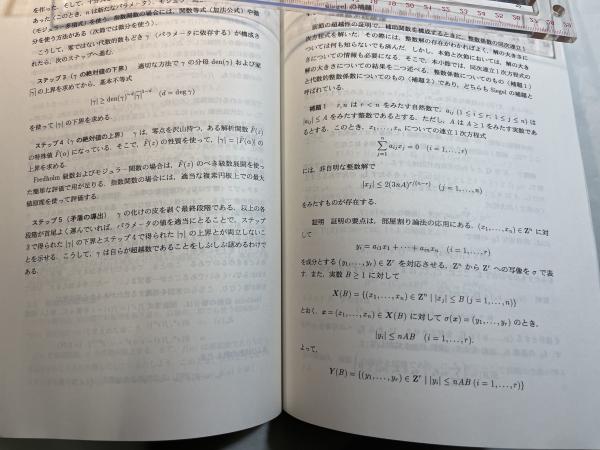 を作った．そして，十分大
あった．このとき，n は新たなパラメータ）．モジュ
（モジュラー多項式）を使う．指数関数の場合には，関数等式（加法公式）や微
分を使う方法がある（次節では微分を使う）．
こうして，零ではない代数的数もどき γ（パラメータに依存する）が構成さ
れたら，次のステップへ進む．
ステップ 3（γ の絶対値の下界） 適切な方法で γ の分母 den(γ) および家
|γ| の上界を求めてから，基本不等式
|γ| ≥ den(γ)^{-d} |γ|^{1-d} (d = deg γ)
を使って |γ| の下界を求める．
ステップ 4（γ の絶対値の上界） γ は，零点を沢山持つ，ある解析関数 F(z)
の特殊値 F(α) になっている．そこで，F(z) の性質を使って，|γ| = |F(α)| の
上界を求める．
Fredholm 級数およびモジュラー関数の場合は，F(z) のべき級数展開を使っ
た簡単な評価で用が足りる．指数関数の場合には，適当な複素円板上での最大
値原理を使って評価する．
ステップ 5（矛盾の導出） γ の化けの皮を剥ぐ最終段階である．以上の各
段階が首尾よく運んでいれば，パラメータの値を適当にとることで，ステップ
3 で得られた |γ| の下界とステップ 4 で得られた |γ| の上界とが両立しないこ
とを示せる．こうして，γ は自らが超越数であることをしぶしぶ認めるわけで
ある．
Siegel の補題
実際の超越性の証明で，補助関数を構成するときに，整数係数の同次連立 1
次方程式を解いた．その際には，整数解の存在がわかればよく，解の大きさに
ついては何も知らないでも済んだ．しかし，本節と次節においては，解の大き
さについての情報も必要になる．そこで，本小節では，同次連立 1 次方程式の
解の大きさについての結果を二つ述べる．整数係数についてのもの（補題 1）
と代数的整数係数についてのもの（補題 2）であり，どちらも Siegel の補題と
呼ばれている．
補題 1 r, n は r < n をみたす自然数で，a_{ij} (1 ≤ i ≤ r; 1 ≤ j ≤ n) は
|a_{ij}| ≤ A をみたす整数であるとする．ただし，A は A ≥ 1 をみたす実数であ
るとする．このとき，x_1, ..., x_n についての連立 1 次方程式
\sum_{j=1}^{n} a_{ij}x_j = 0 (i = 1, ..., r)
には，非自明な整数解で
|x_j| ≤ 2(3nA)^{r/(n-r)} (j = 1, ..., n)
をみたすものが存在する．
証明 証明の要点は，部屋割り論法の応用にある．(x_1, ..., x_n) ∈ Z^n に対
して
y_i = a_{i1}x_1 + ··· + a_{in}x_n (i = 1, ..., r)
を成分とする (y_1, ..., y_r) ∈ Z^r を対応させる，Z^n から Z^r への写像を σ で表
す．また，実数 B ≥ 1 に対して
X(B) = {(x_1, ..., x_n) ∈ Z^n | |x_j| ≤ B (j = 1, ..., n)}
とおく．x = (x_1, ..., x_n) ∈ X(B) に対して σ(x) = (y_1, ..., y_r) のとき，
|y_i| ≤ nAB (i = 1, ..., r).
よって，
Y(B) = {(y_1, ..., y_r) ∈ Z^r | |y_i| ≤ nAB (i = 1, ..., r)}